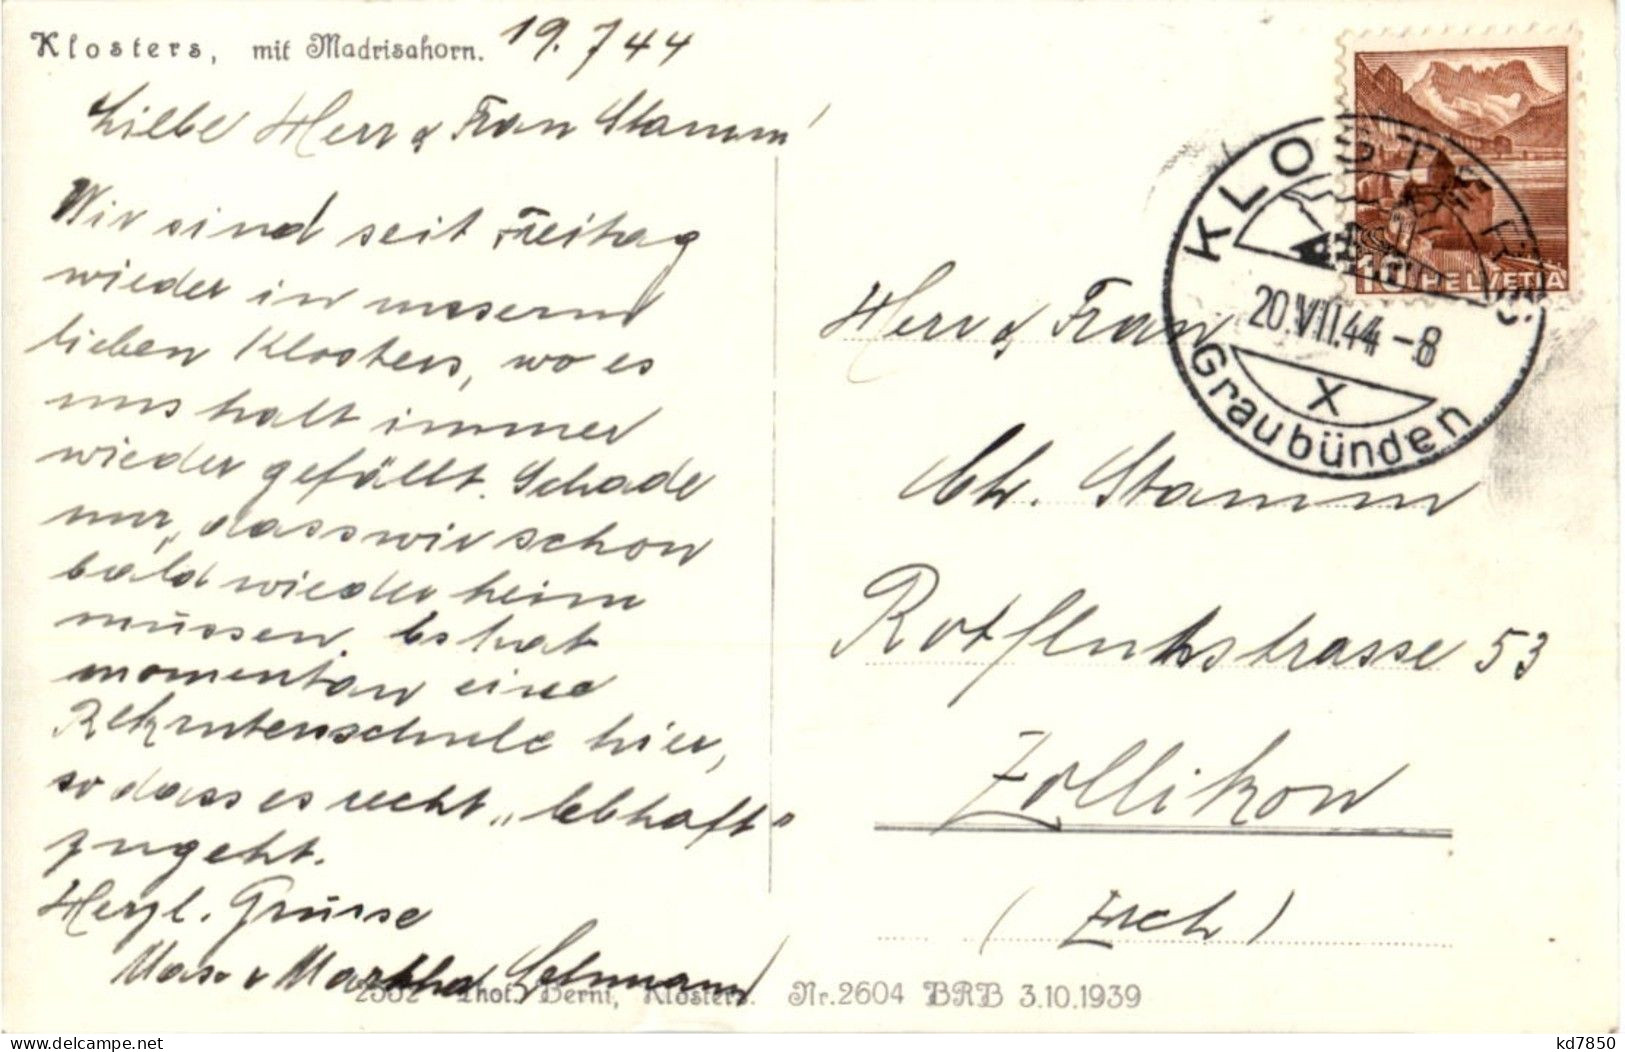 Klosters, mit Madrisahorn. 19.7 44
Liebe Herr & Frau Stamm!
Wir sind seit Freitag
wieder in unserm
lieben Klosters, wo es
uns halt immer
wieder gefällt. Schade
nur, dass wir schon
bald wieder heim
müssen. Es hat
momentan eine
Rekrutenschule hier,
so dass es recht „lebhaft"
zugeht.
Herzl. Grüsse
Max & Martha
2502 Phot. Berni, Klosters. Nr. 2604 BRB 3.10.1939
HELVETIA
10
KLOSTERS
20.VII.44-8
X
Graubünden
Herr & Frau
Ch. Stamm
Rotfluhstrasse 53
Zollikon
(Zrch)
kd7850